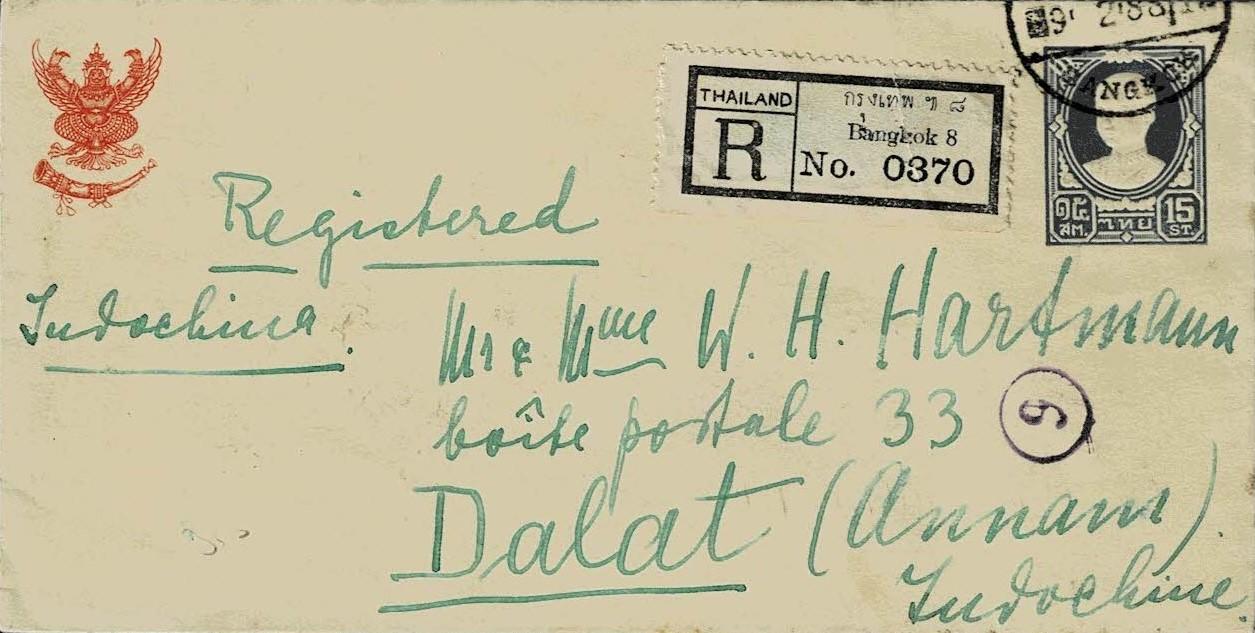 THAILAND
R
กรุงเทพ ฯ ๘
Bangkok 8
No. 0370
๑๕ 15
สต. ไทย ST.
Registered
Indochina.
Mr & Mme W. H. Hartmann
boîte postale 33
9
Dalat (Annam).
Indochine.